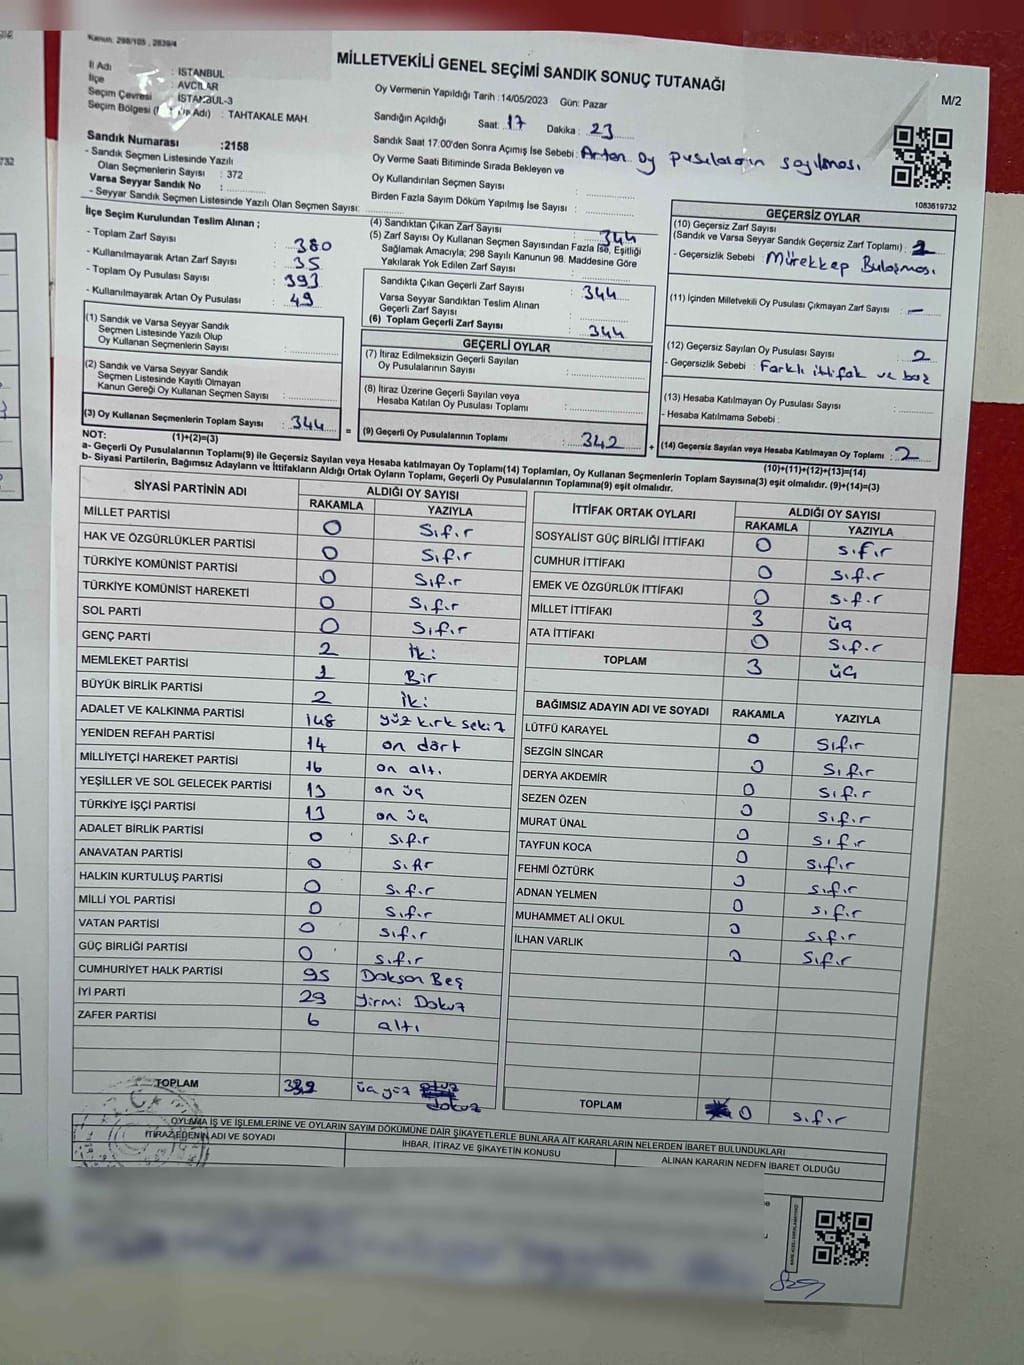 Kanun: 298/105 , 2839/4
MİLLETVEKİLİ GENEL SEÇİMİ SANDIK SONUÇ TUTANAĞI
M/2
İl Adı : İSTANBUL
İlçe : AVCILAR
Seçim Çevresi : İSTANBUL-3
Seçim Bölgesi Adı) : TAHTAKALE MAH.
Sandık Numarası :2158
- Sandık Seçmen Listesinde Yazılı
Olan Seçmenlerin Sayısı : 372
Varsa Seyyar Sandık No :
- Seyyar Sandık Seçmen Listesinde Yazılı Olan Seçmen Sayısı:
Oy Vermenin Yapıldığı Tarih :14/05/2023 Gün: Pazar
Sandığın Açıldığı Saat: 17 Dakika : 23
Sandık Saat 17.00'den Sonra Açımış İse Sebebi : Artan oy pusulaların sayılması
Oy Verme Saati Bitiminde Sırada Bekleyen ve
Oy Kullandırılan Seçmen Sayısı :
Birden Fazla Sayım Döküm Yapılmış İse Sayısı :
1083619732
İlçe Seçim Kurulundan Teslim Alınan ;
- Toplam Zarf Sayısı : 380
- Kullanılmayarak Artan Zarf Sayısı : 35
- Toplam Oy Pusulası Sayısı : 393
- Kullanılmayarak Artan Oy Pusulası : 49
(1) Sandık ve Varsa Seyyar Sandık
Seçmen Listesinde Yazılı Olup
Oy Kullanan Seçmenlerin Sayısı :
(2) Sandık ve Varsa Seyyar Sandık
Seçmen Listesinde Kayıtlı Olmayan
Kanun Gereği Oy Kullanan Seçmen Sayısı :
(3) Oy Kullanan Seçmenlerin Toplam Sayısı : 344
(1)+(2)=(3)
(4) Sandıktan Çıkan Zarf Sayısı : 344
(5) Zarf Sayısı Oy Kullanan Seçmen Sayısından Fazla İse, Eşitliği
Sağlamak Amacıyla; 298 Sayılı Kanunun 98. Maddesine Göre
Yakılarak Yok Edilen Zarf Sayısı :
Sandıkta Çıkan Geçerli Zarf Sayısı : 344
Varsa Seyyar Sandıktan Teslim Alınan
Geçerli Zarf Sayısı :
(6) Toplam Geçerli Zarf Sayısı : 344
GEÇERLİ OYLAR
(7) İtiraz Edilmeksizin Geçerli Sayılan
Oy Pusulalarının Sayısı :
(8) İtiraz Üzerine Geçerli Sayılan veya
Hesaba Katılan Oy Pusulası Toplamı :
= (9) Geçerli Oy Pusulalarının Toplamı : 342
GEÇERSİZ OYLAR
(10) Geçersiz Zarf Sayısı
(Sandık ve Varsa Seyyar Sandık Geçersiz Zarf Toplamı) :
- Geçersizlik Sebebi : Mürekkep Bulaşması
(11) İçinden Milletvekili Oy Pusulası Çıkmayan Zarf Sayısı : -
(12) Geçersiz Sayılan Oy Pusulası Sayısı : 2
- Geçersizlik Sebebi : Farklı ittifak ve boş
(13) Hesaba Katılmayan Oy Pusulası Sayısı :
- Hesaba Katılmama Sebebi :
+ (14) Geçersiz Sayılan veya Hesaba Katılmayan Oy Toplamı : 2
(10)+(11)+(12)+(13)=(14)
NOT:
a- Geçerli Oy Pusulalarının Toplamı(9) ile Geçersiz Sayılan veya Hesaba katılmayan Oy Toplamı(14) Toplamları, Oy Kullanan Seçmenlerin Toplam Sayısına(3) eşit olmalıdır. (9)+(14)=(3)
b- Siyasi Partilerin, Bağımsız Adayların ve İttifakların Aldığı Ortak Oyların Toplamı, Geçerli Oy Pusulalarının Toplamına(9) eşit olmalıdır.
SİYASİ PARTİNİN ADI ALDIĞI OY SAYISI
RAKAMLA YAZIYLA
MİLLET PARTİSİ 0 Sıfır
HAK VE ÖZGÜRLÜKLER PARTİSİ 0 Sıfır
TÜRKİYE KOMÜNİST PARTİSİ 0 Sıfır
TÜRKİYE KOMÜNİST HAREKETİ 0 Sıfır
SOL PARTİ 0 Sıfır
GENÇ PARTİ 2 İki
MEMLEKET PARTİSİ 1 Bir
BÜYÜK BİRLİK PARTİSİ 2 iki
ADALET VE KALKINMA PARTİSİ 148 yüz kırk sekiz
YENİDEN REFAH PARTİSİ 14 on dört
MİLLİYETÇİ HAREKET PARTİSİ 16 on altı
YEŞİLLER VE SOL GELECEK PARTİSİ 13 on üç
TÜRKİYE İŞÇİ PARTİSİ 13 on üç
ADALET BİRLİK PARTİSİ 0 Sıfır
ANAVATAN PARTİSİ 0 Sıfır
HALKIN KURTULUŞ PARTİSİ 0 Sıfır
MİLLİ YOL PARTİSİ 0 Sıfır
VATAN PARTİSİ 0 Sıfır
GÜÇ BİRLİĞİ PARTİSİ 0 Sıfır
CUMHURİYET HALK PARTİSİ 95 Doksan Beş
İYİ PARTİ 29 Yirmi Dokuz
ZAFER PARTİSİ 6 altı
TOPLAM üç yüz dokuz
İTTİFAK ORTAK OYLARI ALDIĞI OY SAYISI
RAKAMLA YAZIYLA
SOSYALİST GÜÇ BİRLİĞİ İTTİFAKI 0 sıfır
CUMHUR İTTİFAKI 0 sıfır
EMEK VE ÖZGÜRLÜK İTTİFAKI 0 sıfır
MİLLET İTTİFAKI 3 üç
ATA İTTİFAKI 0 Sıfır
TOPLAM 3 üç
BAĞIMSIZ ADAYIN ADI VE SOYADI RAKAMLA YAZIYLA
LÜTFÜ KARAYEL 0 Sıfır
SEZGİN SİNCAR 0 Sıfır
DERYA AKDEMİR 0 Sıfır
SEZEN ÖZEN 0 Sıfır
MURAT ÜNAL 0 Sıfır
TAYFUN KOCA 0 Sıfır
FEHMİ ÖZTÜRK 0 Sıfır
ADNAN YELMEN 0 Sıfır
MUHAMMET ALİ OKUL 0 Sıfır
İLHAN VARLIK 0 Sıfır
TOPLAM 0 sıfır
OYLAMA İŞ VE İŞLEMLERİNE VE OYLARIN SAYIM DÖKÜMÜNE DAİR ŞİKAYETLERLE BUNLARA AİT KARARLARIN NELERDEN İBARET BULUNDUKLARI
İTİRAZ EDENİN ADI VE SOYADI İHBAR, İTİRAZ VE ŞİKAYETİN KONUSU ALINAN KARARIN NEDEN İBARET OLDUĞU